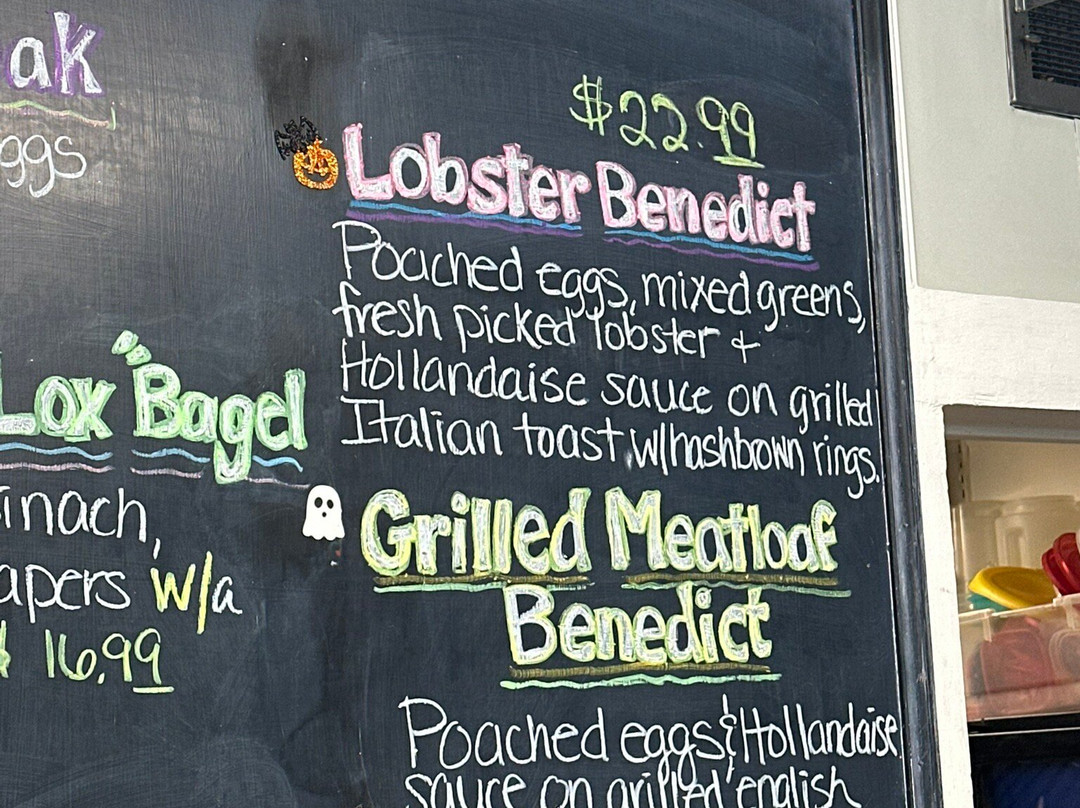 ak
ggs
Lox Bagel
inach,
apers w/a
$ 16.99
$22.99
Lobster Benedict
Poached eggs, mixed greens,
fresh picked lobster +
Hollandaise sauce on grilled
Italian toast w/hashbrown rings.
Grilled Meatloaf
Benedict
Poached eggs & Hollandaise
sauce on grilled english